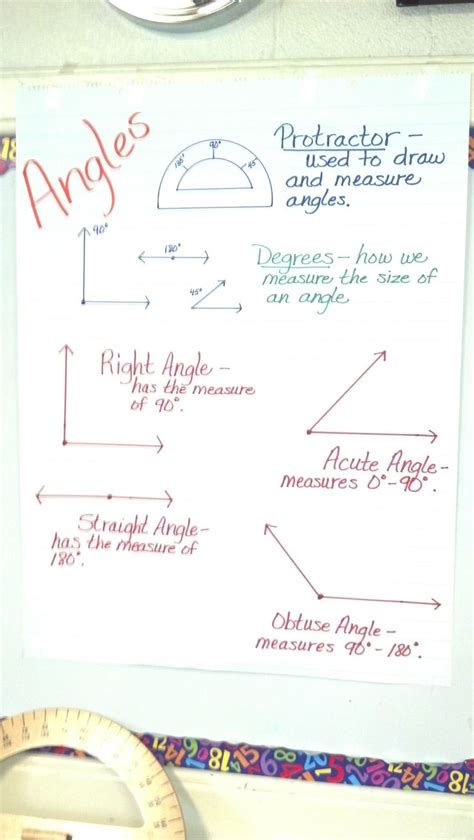 Angles
Protractor –
used to draw
and measure
angles.
90°
45°
90°
180°
45°
Degrees – how we
measure the size of
an angle
Right Angle –
has the measure
of 90°.
Acute Angle –
measures 0°-90°.
Straight Angle –
has the measure of
180°.
Obtuse Angle –
measures 90°-180°.